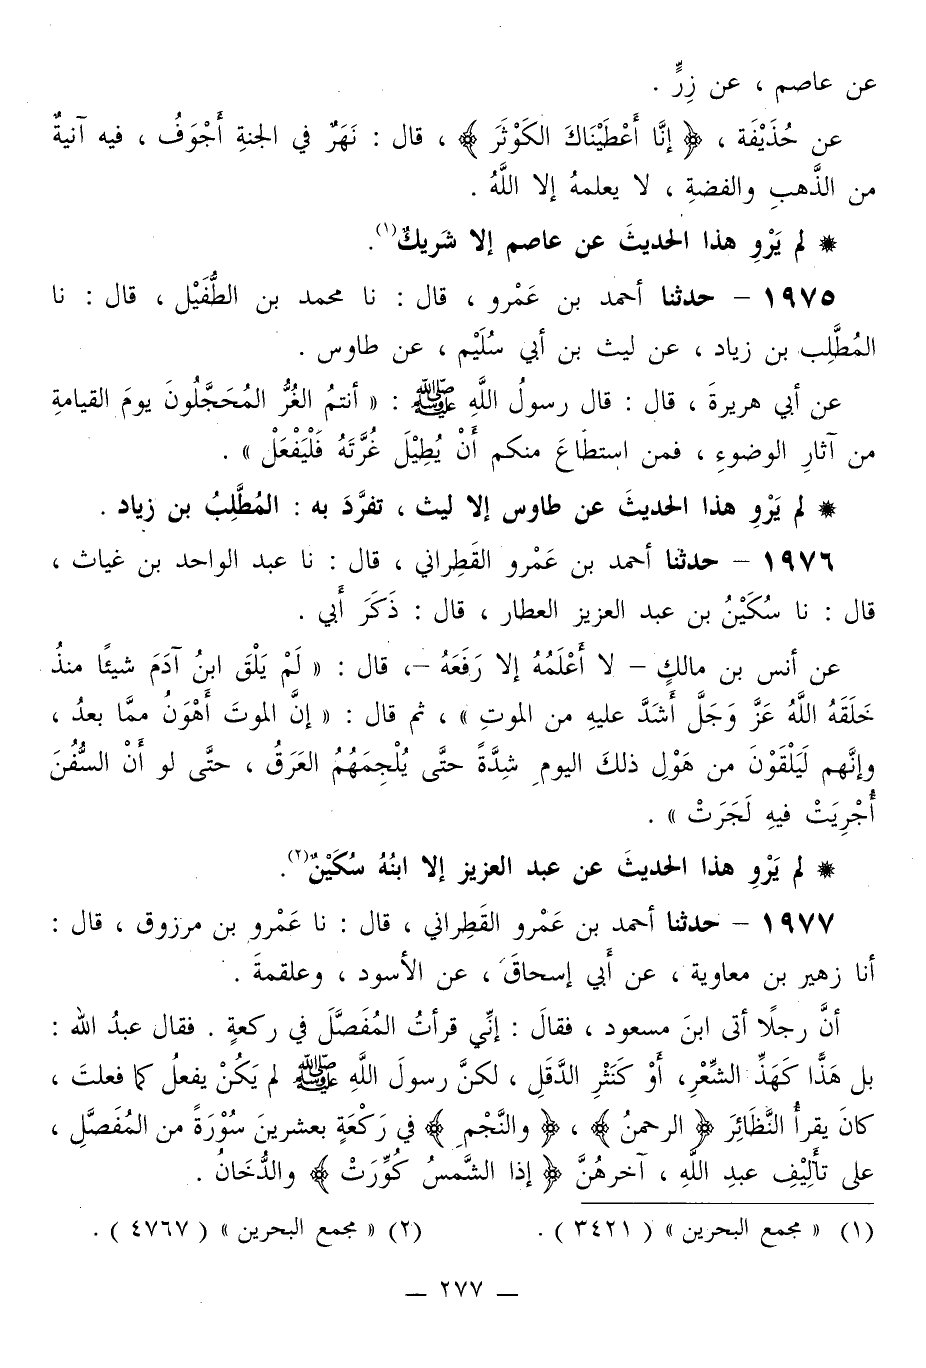 عن عاصم ، عن زِرٍّ .
عن حُذَيْفَة ، ﴿ إنَّا أَعْطَيْناكَ الكَوْثَرَ ﴾ ، قال : نَهَرٌ في الجنةِ أَجْوَفُ ، فيه آنيةٌ
من الذَّهبِ والفضةِ ، لا يعلمهُ إلا اللَّهُ .
* لم يَرْوِ هذا الحديثَ عن عاصم إلا شَريكٌ(١).
١٩٧٥ – حدثنا أحمد بن عَمْرو ، قال : نا محمد بن الطُّفَيْل ، قال : نا
المُطَّلِب بن زياد ، عن ليث بن أبي سُلَيْم ، عن طاوس .
عن أبي هريرةَ ، قال : قال رسولُ اللَّهِ ﷺ : « أنتمُ الغُرُّ المُحَجَّلُونَ يومَ القيامةِ
من آثارِ الوضوءِ ، فمن استطَاعَ منكم أَنْ يُطِيْلَ غُرَّتَهُ فَلْيَفْعَلْ » .
* لم يَرْوِ هذا الحديثَ عن طاوس إلا ليث ، تفرَّدَ به : المُطَّلِبُ بن زياد .
١٩٧٦ – حدثنا أحمد بن عَمْرو القَطِراني ، قال : نا عبد الواحد بن غياث ،
قال : نا سُكَيْنُ بن عبد العزيز العطار ، قال : ذَكَرَ أَبي .
عن أنس بن مالكٍ – لا أَعْلَمُهُ إلا رَفَعَهُ –، قال : « لَمْ يَلْقَ ابنُ آدَمَ شيئًا منذُ
خَلَقَهُ اللَّهُ عَزَّ وَجَلَّ أَشدَّ عليهِ من الموتِ » ، ثم قال : « إنَّ الموتَ أَهْوَنُ ممَّا بعدُ ،
وإنَّهم لَيَلْقَوْنَ من هَوْلِ ذلكَ اليومِ شِدَّةً حتَّى يُلْجِمَهُمُ العَرَقُ ، حتَّى لو أنَّ السُّفُنَ
أُجْرِيَتْ فيهِ لَجَرَتْ » .
* لم يَرْوِ هذا الحديثَ عن عبد العزيز إلا ابنُهُ سُكَيْنٌ(٢).
١٩٧٧ – حدثنا أحمد بن عَمْرو القَطِراني ، قال : نا عَمْرو بن مرزوق ، قال :
أنا زهير بن معاوية ، عن أَبي إسحاقَ ، عن الأسود ، وعلقمةَ .
أنَّ رجلًا أتى ابنَ مسعود ، فقالَ : إنِّي قرأتُ المُفَصَّلَ في ركعةٍ . فقال عبدُ الله :
بل هَذًّا كَهَذِّ الشِّعْرِ، أَوْ كَنَثْرِ الدَّقَلِ ، لكنَّ رسولَ اللَّهِ ﷺ لم يَكُنْ يفعلُ كما فعلتَ ،
كانَ يقرأُ النَّظائِرَ ﴿ الرحمنُ ﴾ ، ﴿ والنَّجْمِ ﴾ في رَكْعَةٍ بعشرينَ سُوْرَةً من المُفَصَّلِ ،
على تأْلِيْفِ عبدِ اللَّهِ ، آخرهُنَّ ﴿ إذا الشَّمسُ كُوِّرَتْ ﴾ والدُّخَانُ .
(١) « مجمع البحرين » ( ٣٤٢١ ) .
(٢) « مجمع البحرين » ( ٤٧٦٧ ) .
— ٢٧٧ —